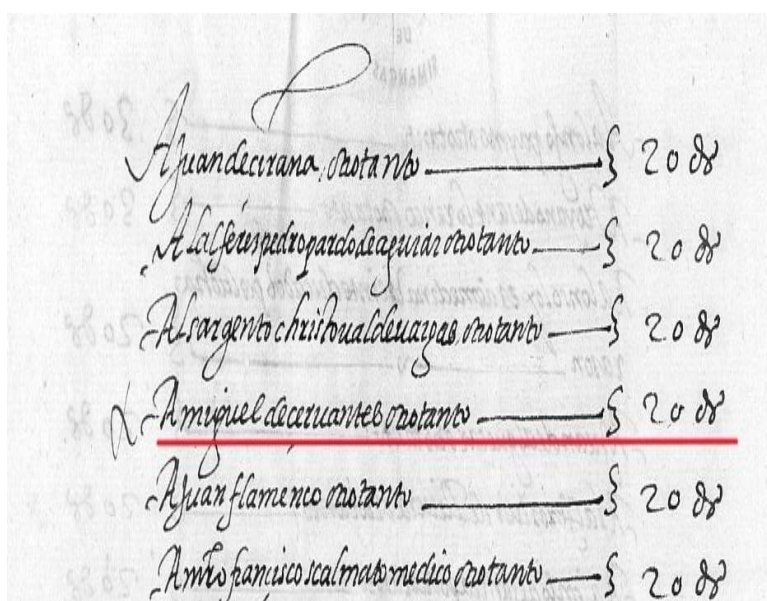 A Juan de cirana, otro tanto } 20 ds
Al alferes pedro pardo de aguiar otro tanto } 20 ds
Al sargento christoual de uargas, otro tanto } 20 ds
A miguel de ceruantes otro tanto } 20 ds
A Juan flamenco otro tanto } 20 ds
A francisco scalmato medico otro tanto } 20 ds